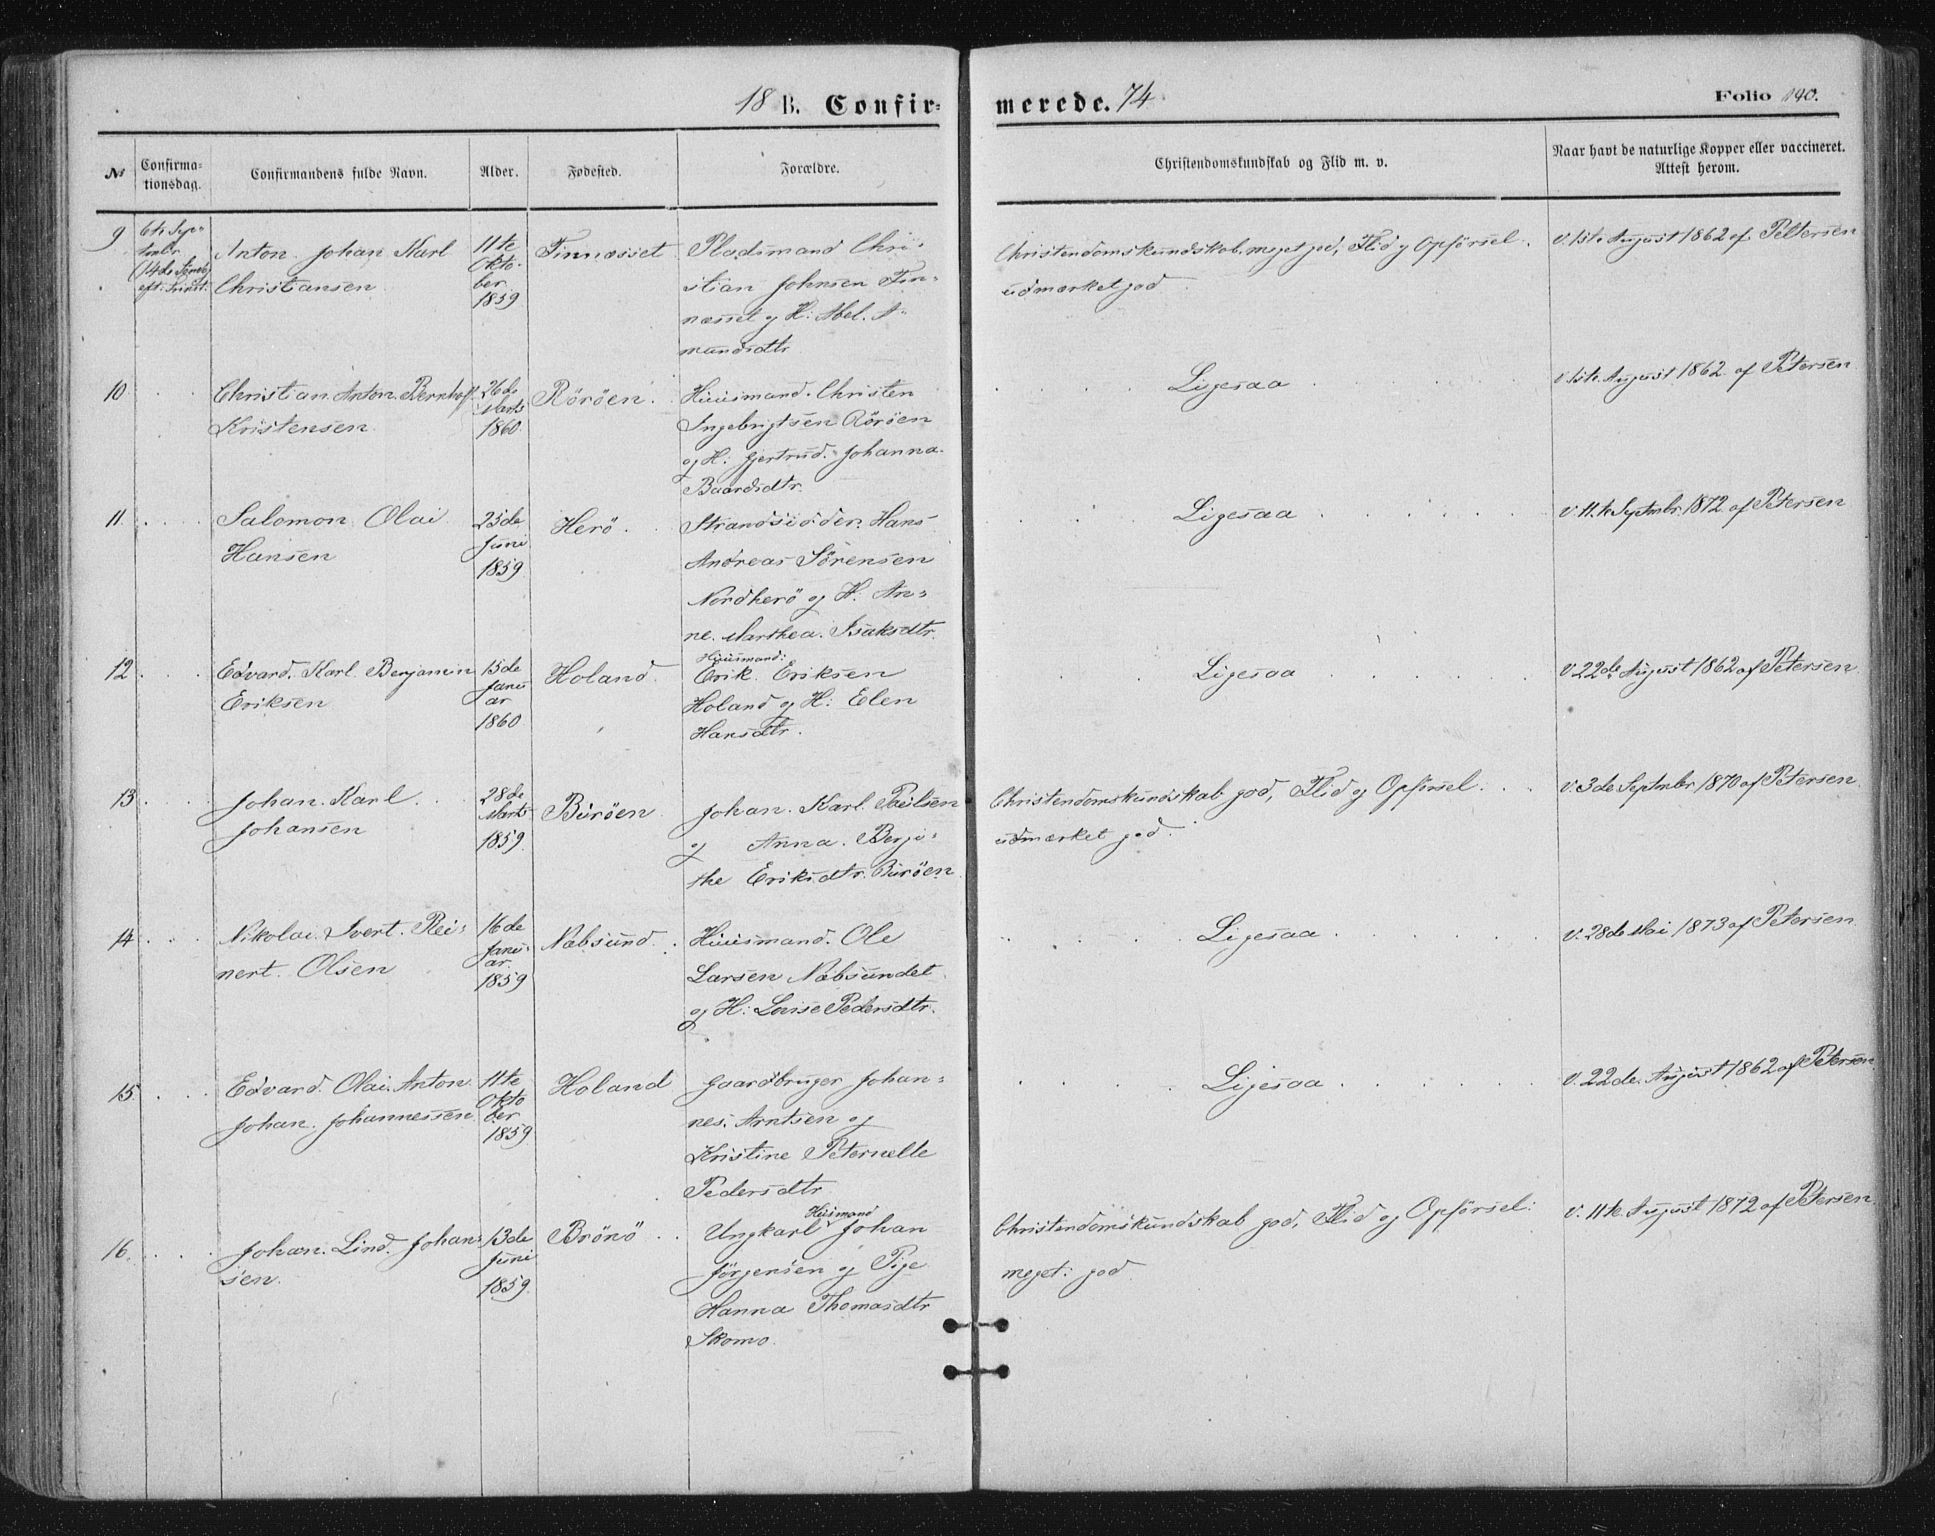 18 B. Confirmerede. 74
Folio 190.
No
Confirmationsdag.
Confirmandens fulde Navn.
Alder.
Fødested.
Forældre.
Christendomskundskab og Flid m. v.
Naar havt de naturlige Kopper eller vaccineret.
Attest herom.
9
6te Sep-
tembr
(14de Sønd
eft. Trinit.
Anton Johan Karl
Christiansen
11te
Okto-
ber
1859
Finnæsset
Pladsmand Chri-
stian Johnsen Fin-
næsset og H. Abel. A-
mundsdtr
Christendomskundskab. meget god, Flid og Opførsel.
udmærket god
v. 1ste August 1862 af Pettersen
10
Christian Anton Bernhoft
Kristensen
26de
Marts
1860
Röröen
Huusmand Christen
Ingebrigtsen Röröen
og H. Gjertrud Johanna
Baardsdtr.
Ligesaa
v. 1ste August 1862 af Petersen
11
Salomon Olai
Hansen
25de
Juni
1859
Herö
Strandsidder Hans
Andreas Sörensen
Nordherö og H. An-
ne. Marthea. Isaksdtr
Ligesaa
v. 11te Septmbr. 1872 af Petersen
12
Edvard Karl Benjamin
Eriksen
15de
Janu
ar
1860
Holand
Huusmand
Erik Eriksen
Holand og H: Elen
Hansdtr.
Ligesaa
v. 22de August 1862 af Petersen
13
Johan Karl
Johansen
28de
Marts
1859
Buröen
Johan Karl Paulsen
og Anna. Berji-
the Eriksdtr. Buröen
Christendomskundskab god, Flid og Opförsel.
udmærket god.
v. 3de Septmbr 1870 af Petersen
14
Nikolai Ivert. Rei-
nert. Olsen
16de
Janu-
ar
1859
Nabsund
Huusmand Ole
Larsen Nabsundet
og H: Lovise Pedersdtr.
Ligesaa
v. 28de Mai 1873 af Petersen
15
Edvard Olai Anton
Johan Johannessen
11te
Okto
ber
1859
Holand
Gaardbruger Johan-
nes. Arntsen og
Kristine Peternelle
Pedersdtr
Ligesaa
v. 22de August 1862 af Petersen
16
Johan Lind Johan-
sen
13de
Juni
1859
Brönö
Huusmand
Ungkarl Johan
Jörgensen og Pige
Hanna Thomasdtr
Skomo
Christendomskundskab god, Flid og Opförsel:
meget god
v. 11te August 1872 af Petersen